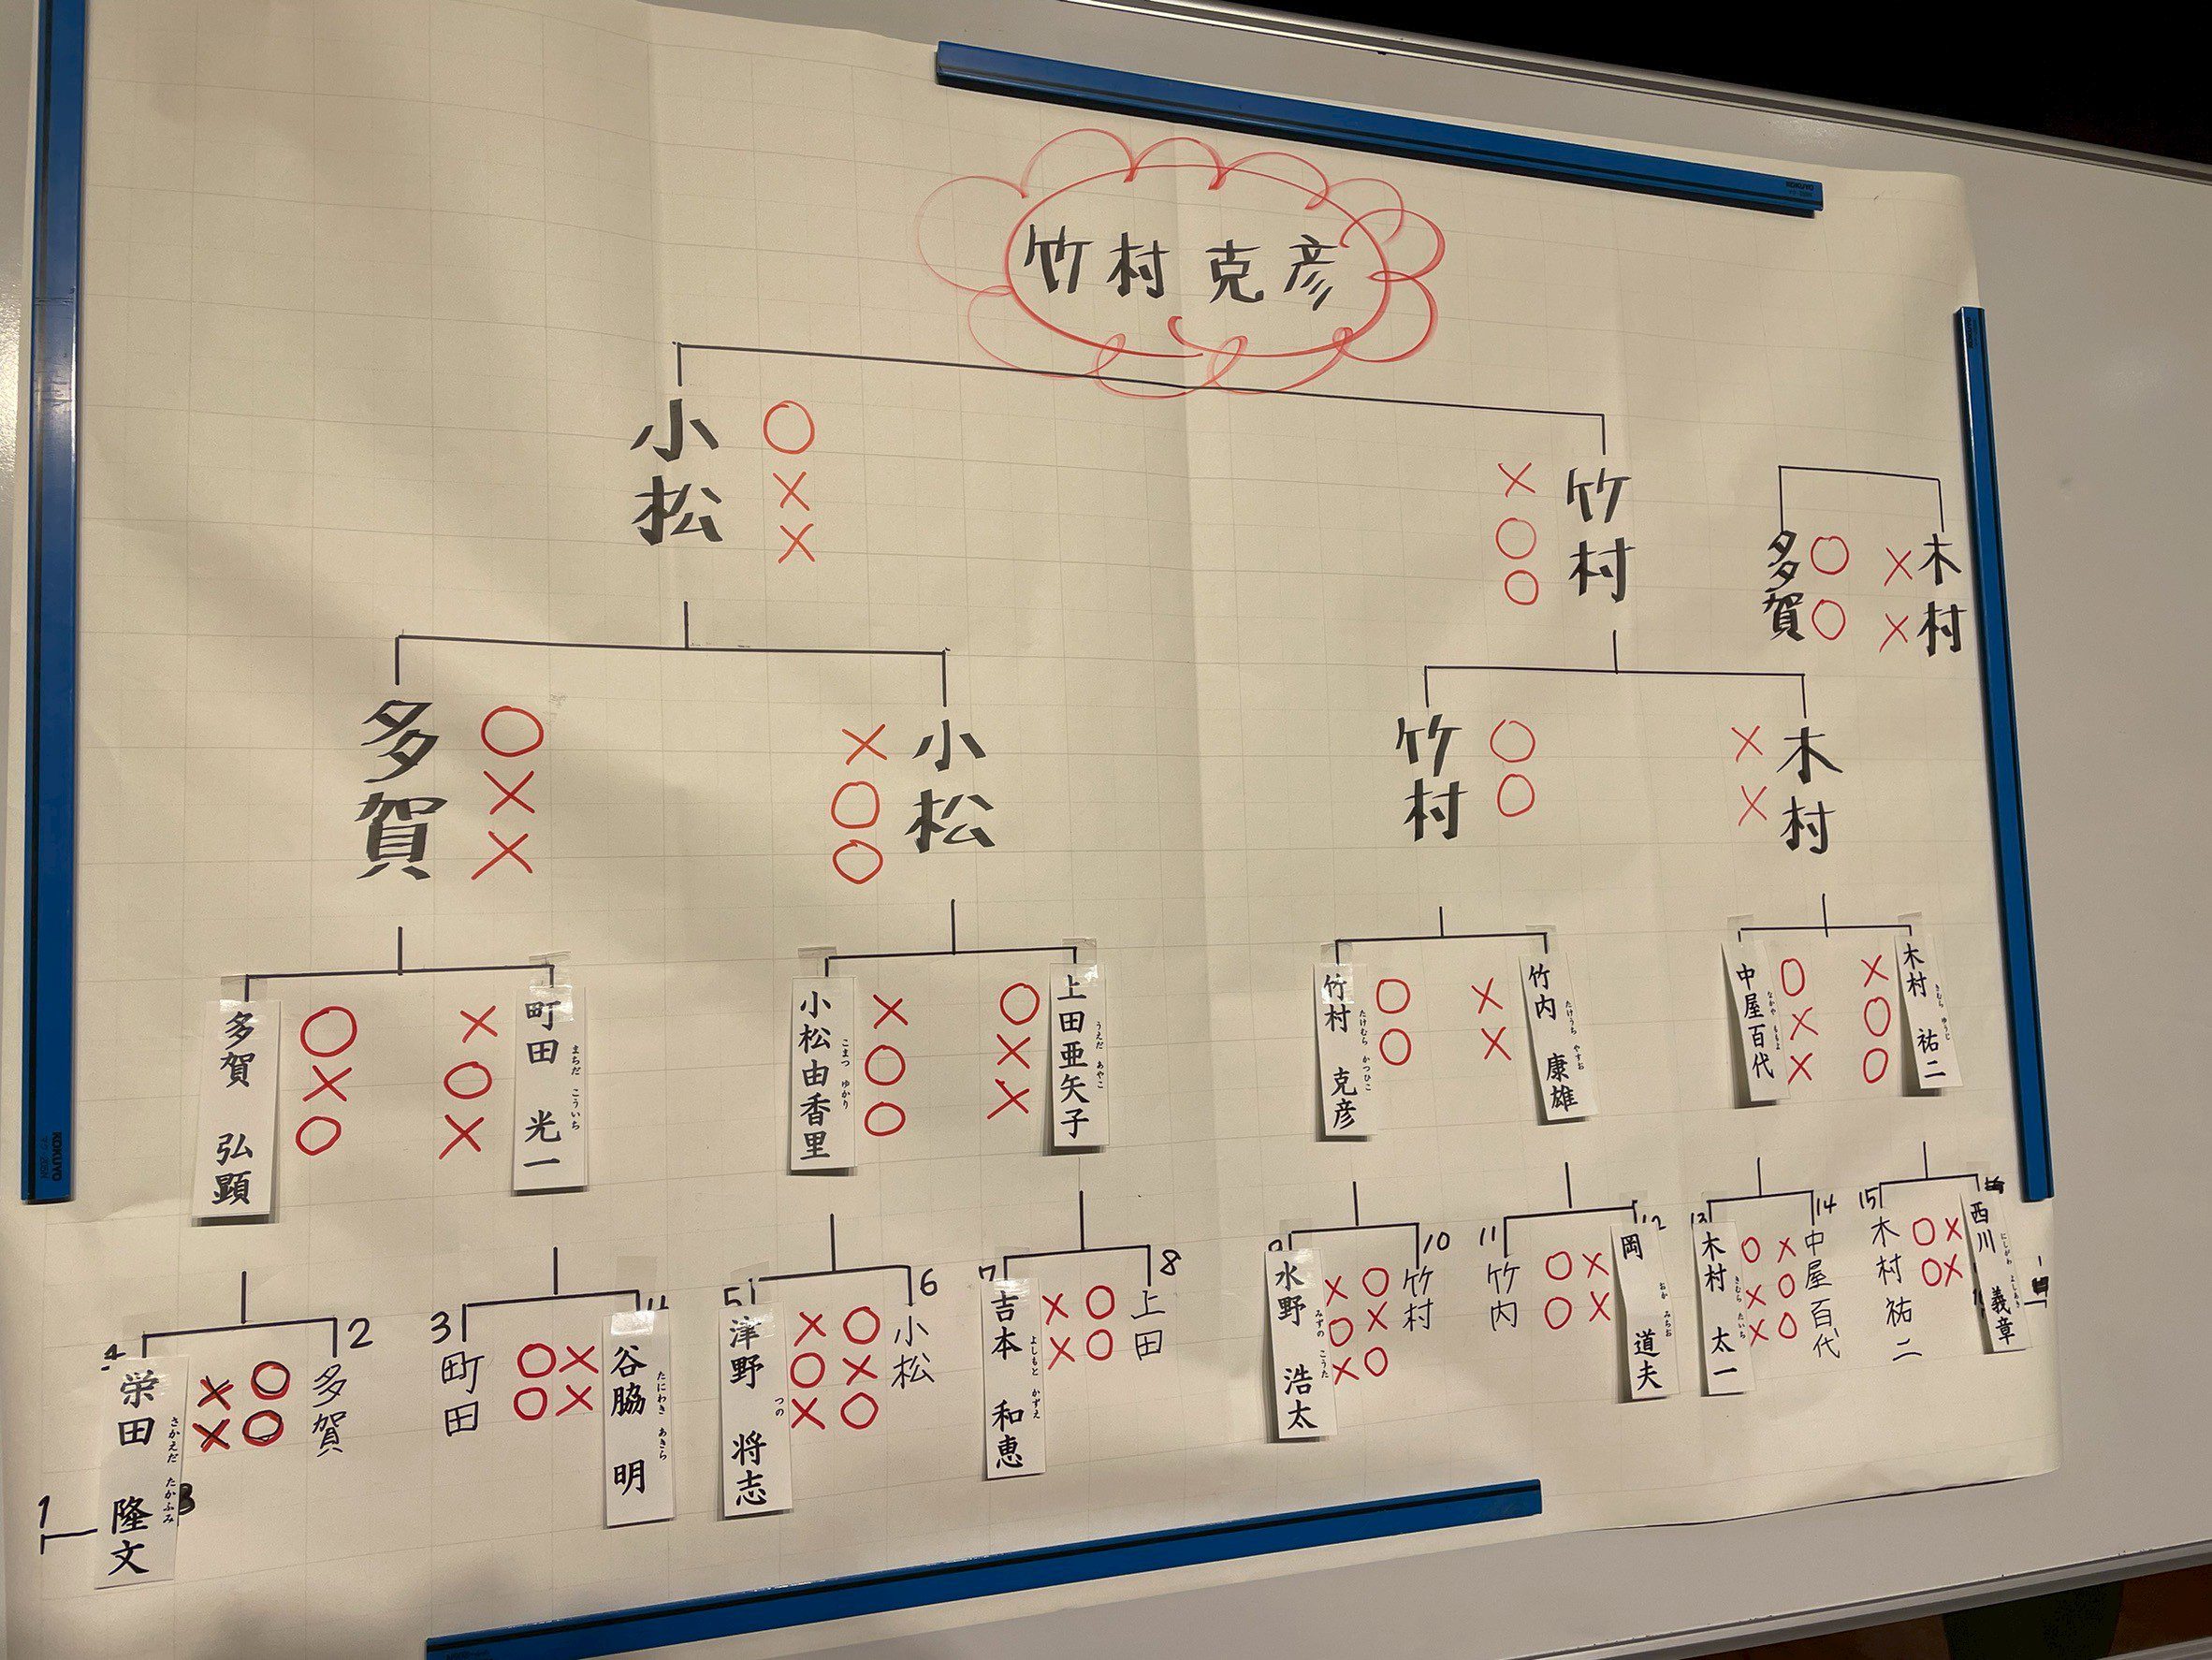 KOKUYO
竹村克彦
小松
○××
×○○
竹村
多賀
○○
××
木村
多賀
○××
×○○
小松
竹村
○○
××
木村
多賀 弘顕
○×○
×○×
町田 光一
まちだ こういち
小松由香里
こまつ ゆかり
×○○
○××
上田亜矢子
うえだ あやこ
竹村 克彦
たけむら かつひこ
○○
××
竹内 康雄
たけうち やすお
中屋百代
なかや ももよ
○××
×○○
木村 祐二
きむら ゆうじ
栄田 隆文
さかえだ たかふみ
××
○○
2
多賀
3
町田
○○
××
谷脇 明
たにわき あきら
5
津野 将志
つの
×○×
○×○
6
小松
7
吉本 和恵
よしもと かずえ
××
○○
8
上田
9
水野 浩太
みずの こうた
×○×
○×○
10
竹村
11
竹内
○○
××
12
岡 道夫
おか みちお
13
木村 太一
きむら たいち
○××
×○○
14
中屋百代
15
木村祐二
○○
××
西川 義章
にしがわ よしあき
1
3
KOKUYO